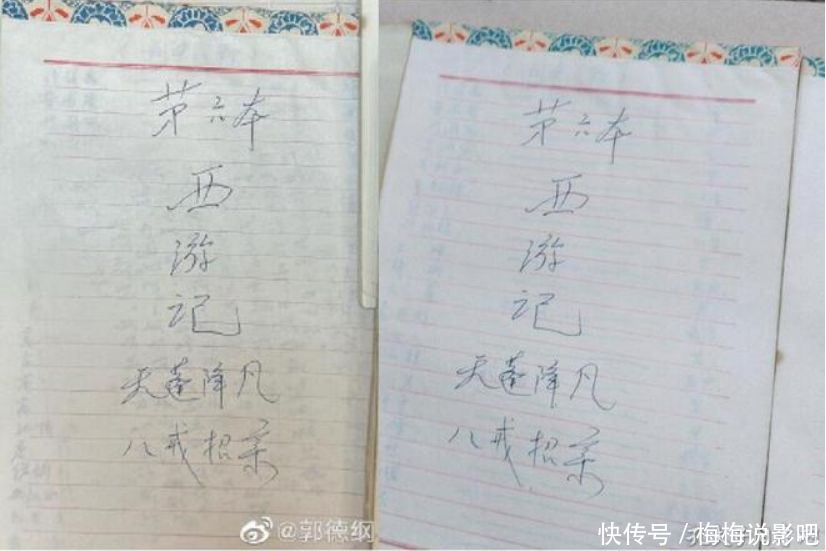 第六本
西
游
记
天蓬降凡
八戒招亲
@郭德纲
第六本
西
游
记
天蓬降凡
八戒招亲
快传号/梅梅说影吧